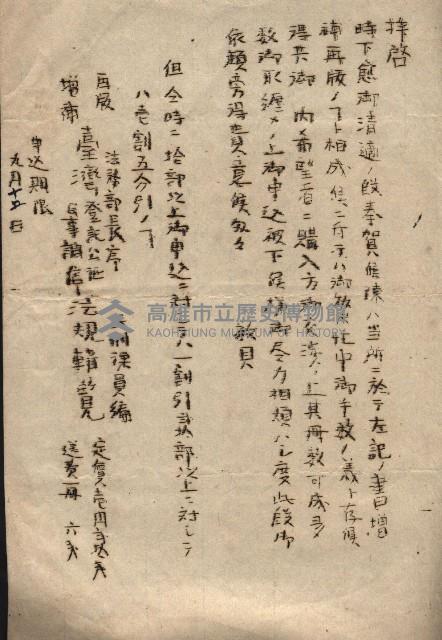 拝啓
時下愈御清適ノ段奉賀候陳ハ当所ニ於テ左記ノ書目増
補再版ノコト相成候ニ付テハ御繁忙中御手数ノ義ト存候
得共御 内ノ希望者ニ購入方御 上其冊数可成多
数御取纏メノ上御申込被下候様御尽力相煩ハシ度此段御
依頼旁得貴意候敬具
敬具
但全時ニ拾部以上御申込ニ対シテハ一割引 拾部以上ニ対シテ
ハ壱割五分引ノコト
法務部長序
民刑課員編
再版
増補
臺灣登記公証
民事調停法規輯覧
定價壱円
送費一冊 六
申込期限
九月十五日
高雄市立歷史博物館
KAOHSIUNG MUSEUM OF HISTORY